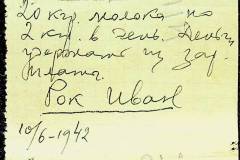 20 кгр. молока по
2 кгр. в день. Деньги
удержать из зар.
платы.
Рок Иван
10/6-1942